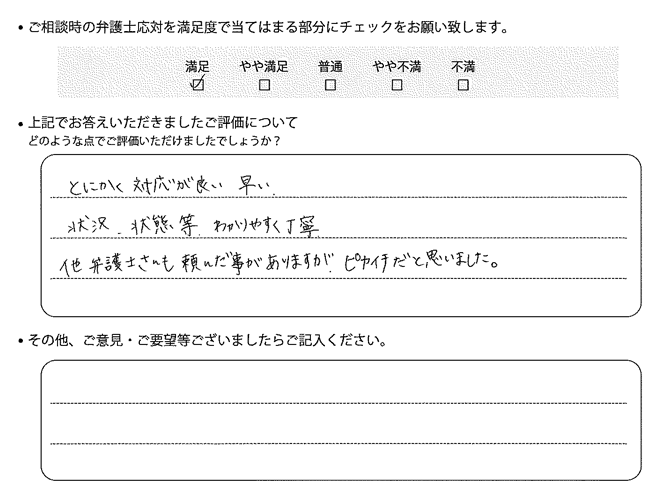 • ご相談時の弁護士応対を満足度で当てはまる部分にチェックをお願い致します。
満足 やや満足 普通 やや不満 不満
☑ □ □ □ □
• 上記でお答えいただきましたご評価について
どのような点でご評価いただけましたでしょうか？
とにかく 対応が良い 早い
状況、状態等、わかりやすく丁寧
他 弁護士さんも 頼んだ事がありますが ピカイチだと思いました。
• その他、ご意見・ご要望等ございましたらご記入ください。